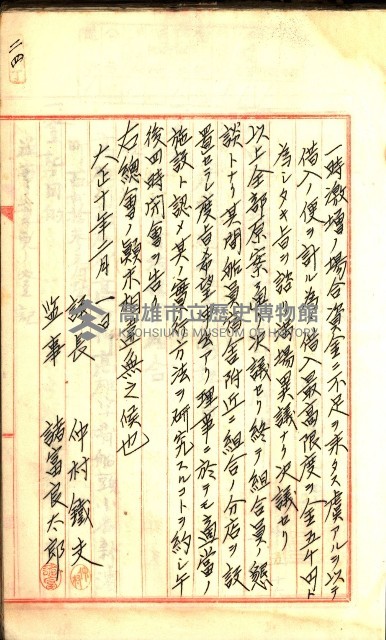 二四
一時激増ノ場合資金ニ不足ヲ来タス虞アルヲ以テ
借入ノ便ヲ計ル為借入最高限度ヲ金五千円ト
為シタキ旨ヲ諮リ満場異議ナク決議セリ
以上全部原案通決議セリ終テ組合員ノ懇
談トナリ其間船員 金附近ニ組合ノ分店ヲ設
置セラレ度旨希望 アリ理事ニ於テモ適当ノ
施設ト認メ其ノ実 方法ヲ研究スルコトヲ約シ午
後四時閉会ヲ告
右総会ノ顛末相違無之候也
大正十年二月一日
議長 仲村鐵丈
監事 諸富良太郎
高雄市立歷史博物館
KAOHSIUNG MUSEUM OF HISTORY